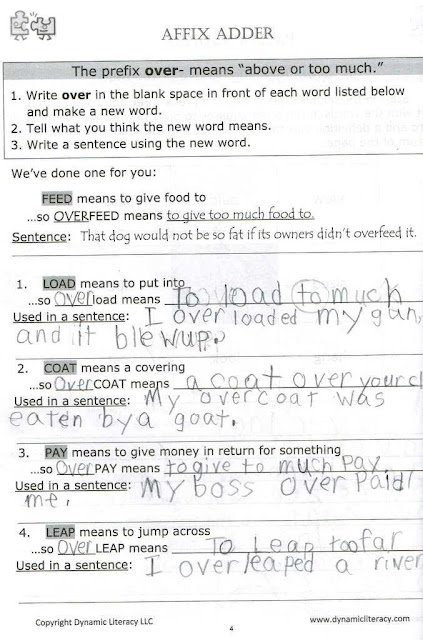 AFFIX ADDER
The prefix over- means "above or too much."
1. Write over in the blank space in front of each word listed below
and make a new word.
2. Tell what you think the new word means.
3. Write a sentence using the new word.
We've done one for you:
FEED means to give food to
...so OVERFEED means to give too much food to.
Sentence: That dog would not be so fat if its owners didn't overfeed it.
1. LOAD means to put into
...so Over load means To load to much
Used in a sentence: I overloaded my gun,
and it blew up.
2. COAT means a covering
...so Over COAT means a coat over your cl
Used in a sentence: My overcoat was
eaten by a goat.
3. PAY means to give money in return for something
...so Over PAY means to give to much pay.
Used in a sentence: My boss over paid
me.
4. LEAP means to jump across
...so Over LEAP means To Leap too far
Used in a sentence: I overleaped a river
Copyright Dynamic Literacy LLC
4
www.dynamicliteracy.com